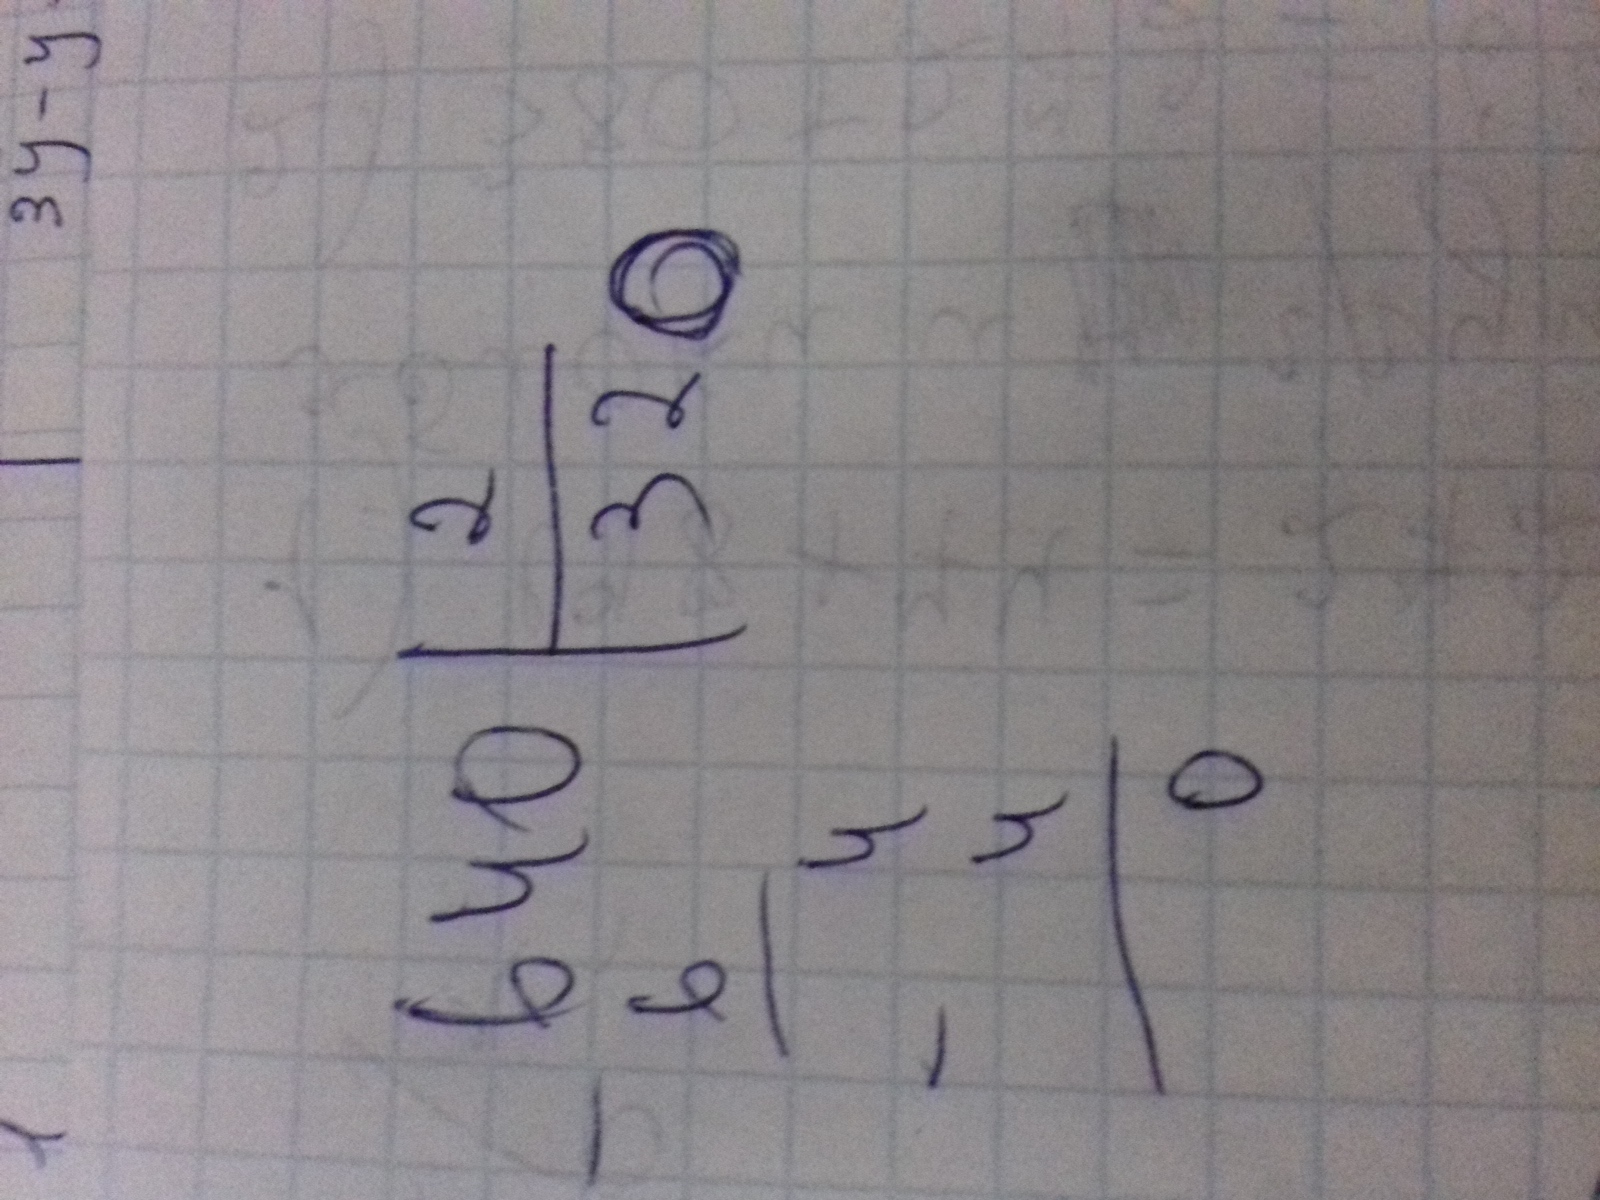 640 | 2
- 6 | 320
4
- 4
0
3y-y